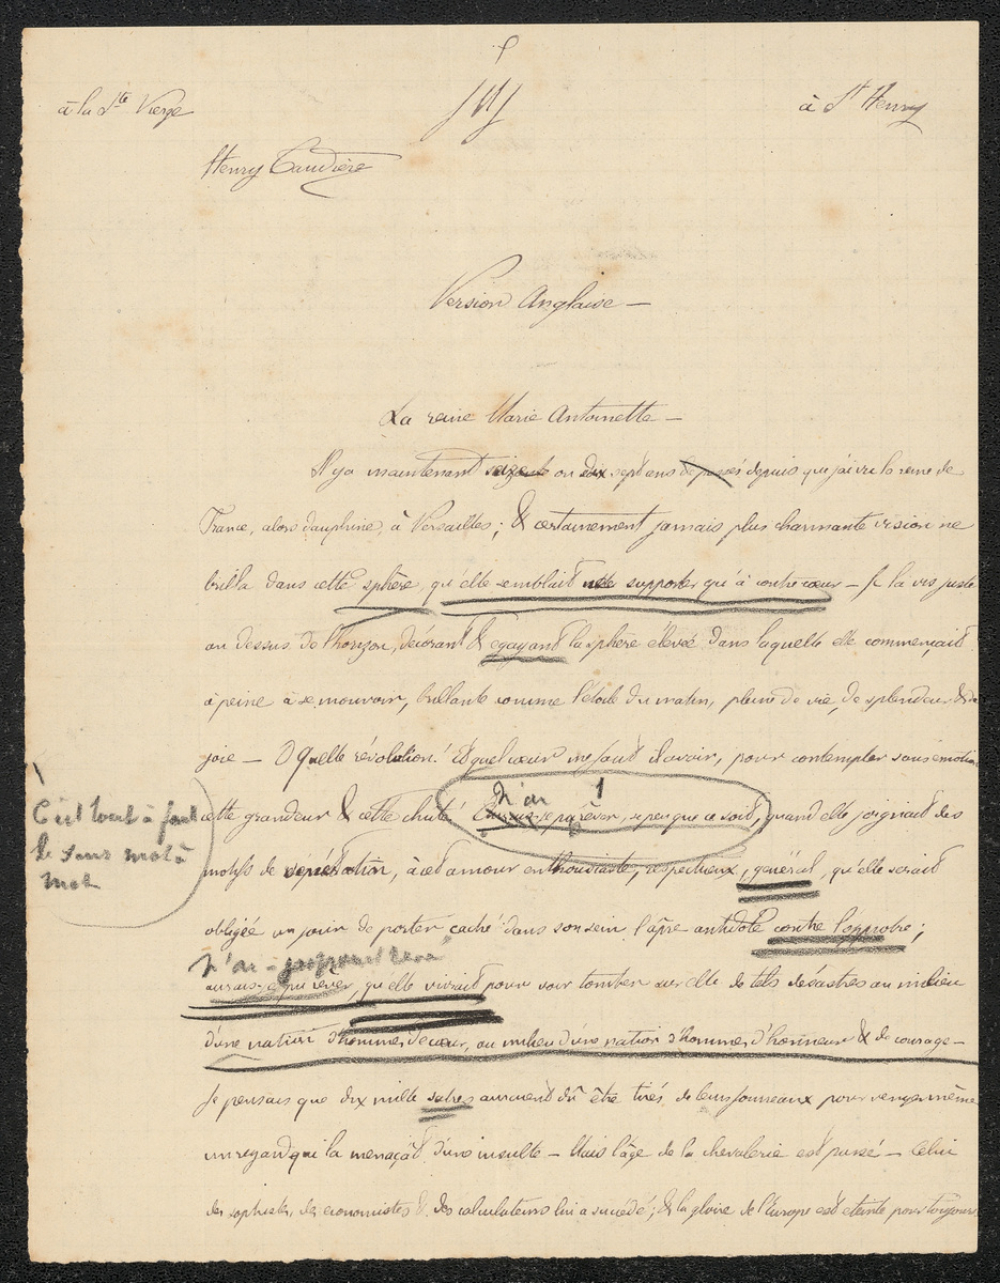 à la Ste Vierge
JMJ
à St Henry
Henry Taudière
Version Anglaise —
La reine Marie Antoinette —
Il y a maintenant seize ou dix sept ans depuis que j'ai vu la reine de
France, alors dauphine, à Versailles ; & certainement jamais plus charmante vision ne
brilla dans cette sphère, qu'elle semblait ne supporter qu'à contre cœur — Je la vis juste
au dessus de l'horizon, décorant & egayant la sphère élevée dans laquelle elle commençait
à peine à se mouvoir, brillante comme l'étoile du matin, pleine de vie, de splendeur & de
joie — O quelle révolution ! Et quel cœur me faut il avoir, pour contempler sans émotion
cette grandeur & cette chute ! pu rêver, si peu que ce soit, quand elle joignait des
motifs de vénération, à cet amour enthousiaste, respectueux, général, qu'elle serait
C'est tout à fait
le sens mot à
mot
obligée un jour de porter caché dans son sein l'âpre antidote contre l'opprobre ;
aurais-je pu rêver, qu'elle vivrait pour voir tomber sur elle de tels désastres au milieu
d'une nation d'hommes de cœur, au milieu d'une nation d'hommes d'honneur & de courage —
Je pensais que dix mille sabres auraient dû être tirés de leurs fourreaux pour venger même
un regard qui la menaçât d'une insulte — Mais l'âge de la chevalerie est passé — Celui
des sophistes, des économistes & des calculateurs lui a succédé ; & la gloire de l'Europe est éteinte pour toujours